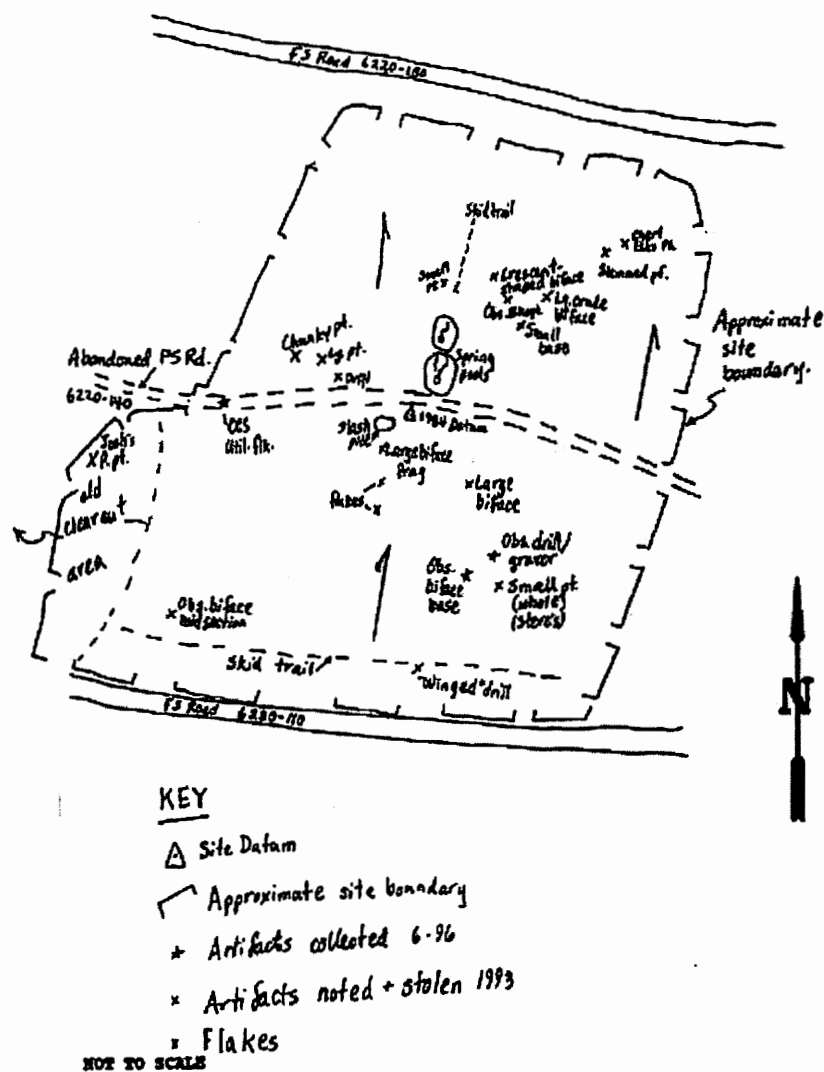 FS Road 6220-180
Skid trail
Chert
Stemmed pt.
Crescent-
shaped biface
Lg. crude
biface
Small
base
Approximate
site
boundary.
Chunky pt.
Lg pt.
Drill
Spring
pools
Abandoned FS Rd.
6220-140
1984 Datum
Util. flk.
Slash
pile
Large biface
frag
Large
biface
Flakes
R. pt.
old
clearcut
area
Obs. drill/
graver
Obs.
biface
base
Small pt.
(whole)
Obs. biface
midsection
Skid trail
"Winged" drill
FS Road 6220-170
N
KEY
Site Datum
Approximate site boundary
Artifacts collected 6-96
Artifacts noted + stolen 1993
Flakes
NOT TO SCALE